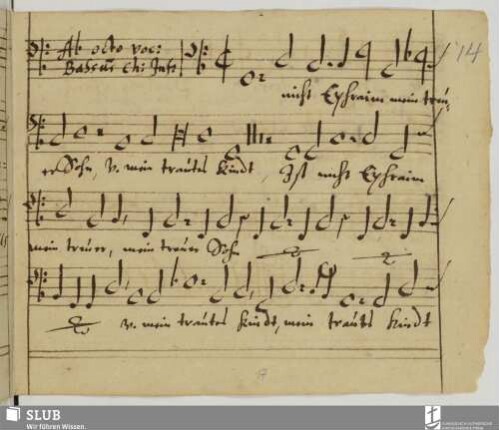 Ab octo voc:
Bassus Ch: Inft
14
nicht Ephraim mein treu,
er Sohn, v. mein trautes Kindt, Ist nicht Ephraim
mein treuer, mein treuer Sohn
v. mein trautes Kindt, mein trauts Kindt
SLUB
Wir führen Wissen.